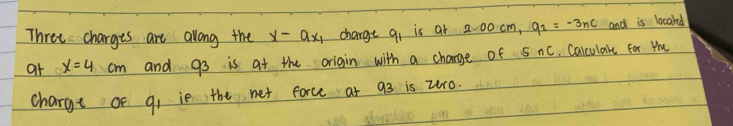 Three charges are along the x- axi, charge q₁ is at 2.00 cm, q₂ = -3nC and is located
at x=4 cm and q3 is at the origin with a charge of 5 nC. Calculate for the
charge of q₁ if the net force at q3 is zero.